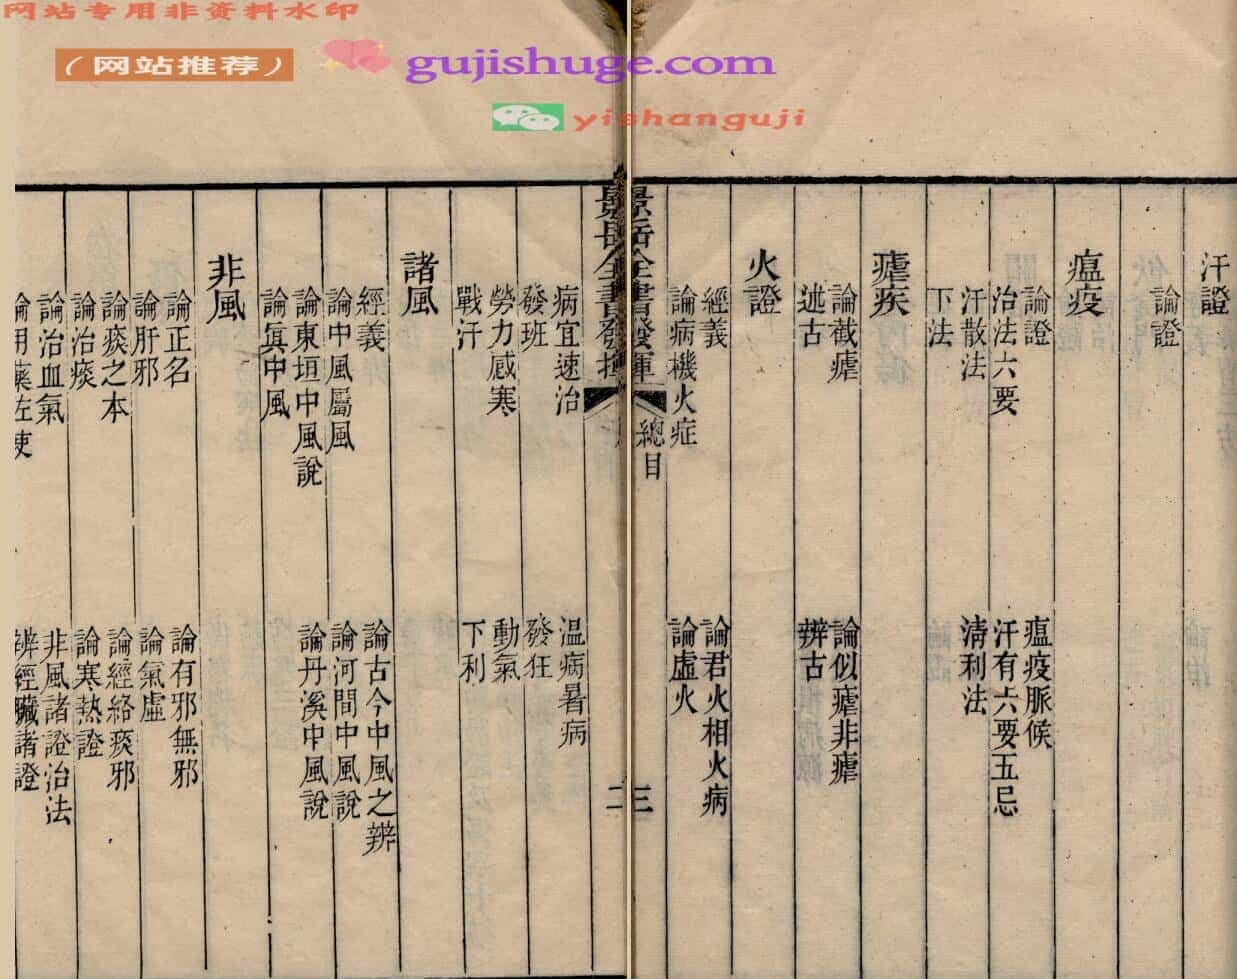 网站专用非资料水印
（网站推荐）
gujishuge.com
yishanguji
汗證
論證
瘟疫
論證 瘟疫脈候
治法六要 汗有六要五忌
汗散法 淸利法
下法
瘧疾
論截瘧 論似瘧非瘧
述古 辨古
火證
經義 論君火相火病
論病機火症 論虛火
景岳全書發揮 總目 三
景岳全書發揮 二
病宜速治 温病暑病
發班 發狂
勞力感寒 動氣
戰汗 下利
諸風
經義 論古今中風之辨
論中風屬風 論河間中風說
論東垣中風說 論丹溪中風說
論眞中風
非風
論正名 論有邪無邪
論肝邪 論氣虛
論痰之本 論經絡痰邪
論治痰 論寒熱證
論治血氣 非風諸證治法
論用藥佐使 辨經臟諸證